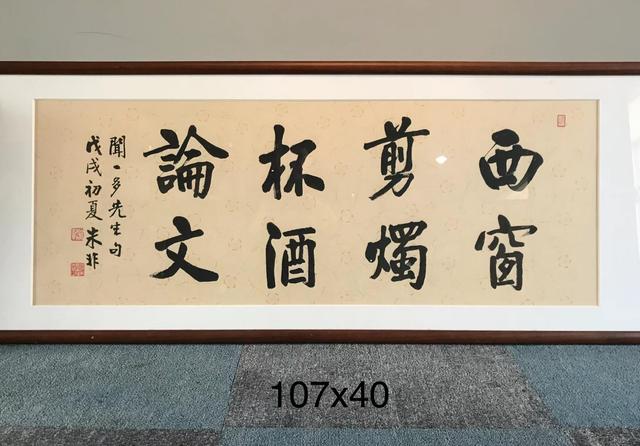 西窗
剪燭
杯酒
論文
聞一多先生句
戊戌初夏米非
107x40